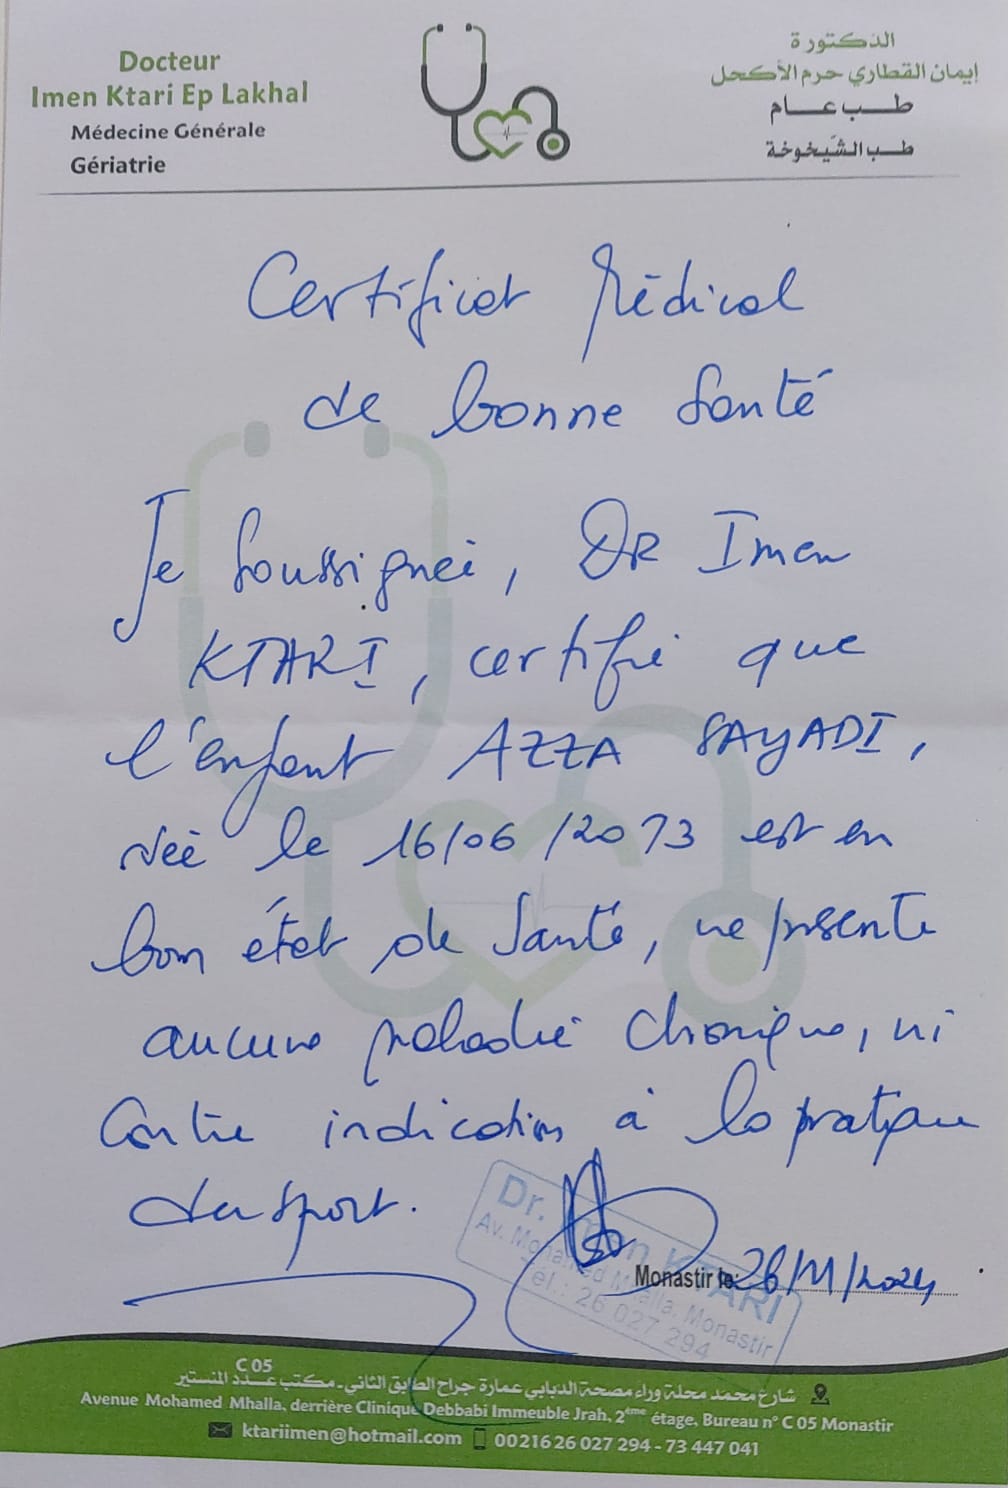 Docteur
Imen Ktari Ep Lakhal
Médecine Générale
Gériatrie
الدكتورة
إيمان القطاري حرم الأكحل
طب عام
طب الشيخوخة
Certificat Médical
de bonne Santé
Je soussignée, DR Imen
KTARI, certifie que
l'enfant AZZA SAYADI,
née le 16/06/2013 est en
bon état de Santé, ne présente
aucune maladie chronique, ni
Contre indication à la pratique
du sport.
Dr. Imen KTARI
Av. Mohamed Mhalla, Monastir
Tél.: 26 027 294
Monastir le: 26/11/2024
شارع محمد محلة وراء مصحة الدبابي عمارة جراح الطابق الثاني - مكتب عدد C 05 المنستير
Avenue Mohamed Mhalla, derrière Clinique Debbabi Immeuble Jrah, 2ème étage, Bureau n° C 05 Monastir
ktariimen@hotmail.com 00216 26 027 294 - 73 447 041